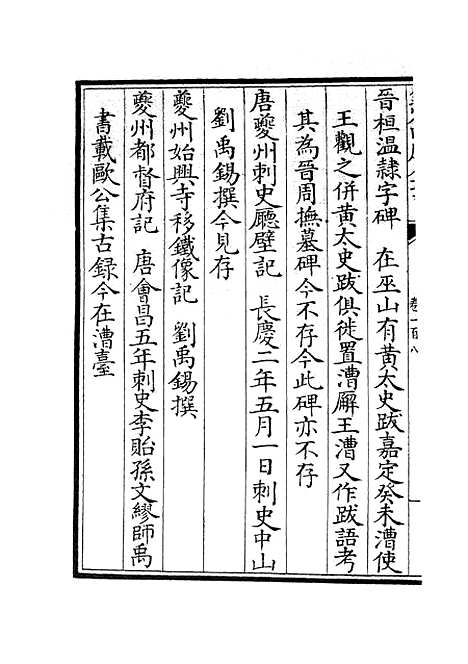 卷一百八
晉桓溫隷字碑　在巫山有黄太史跋嘉定癸未漕使
王觀之併黄太史跋俱徙置漕廨王漕又作跋語考
其為晉周撫墓碑今不存今此碑亦不存
唐夔州刺史廳壁記　長慶二年五月一日刺史中山
劉禹錫撰今見存
夔州始興寺移鐵像記　劉禹錫撰
夔州都督府記　唐會昌五年刺史李貽孫文繆師禹
書載歐公集古録今在漕臺